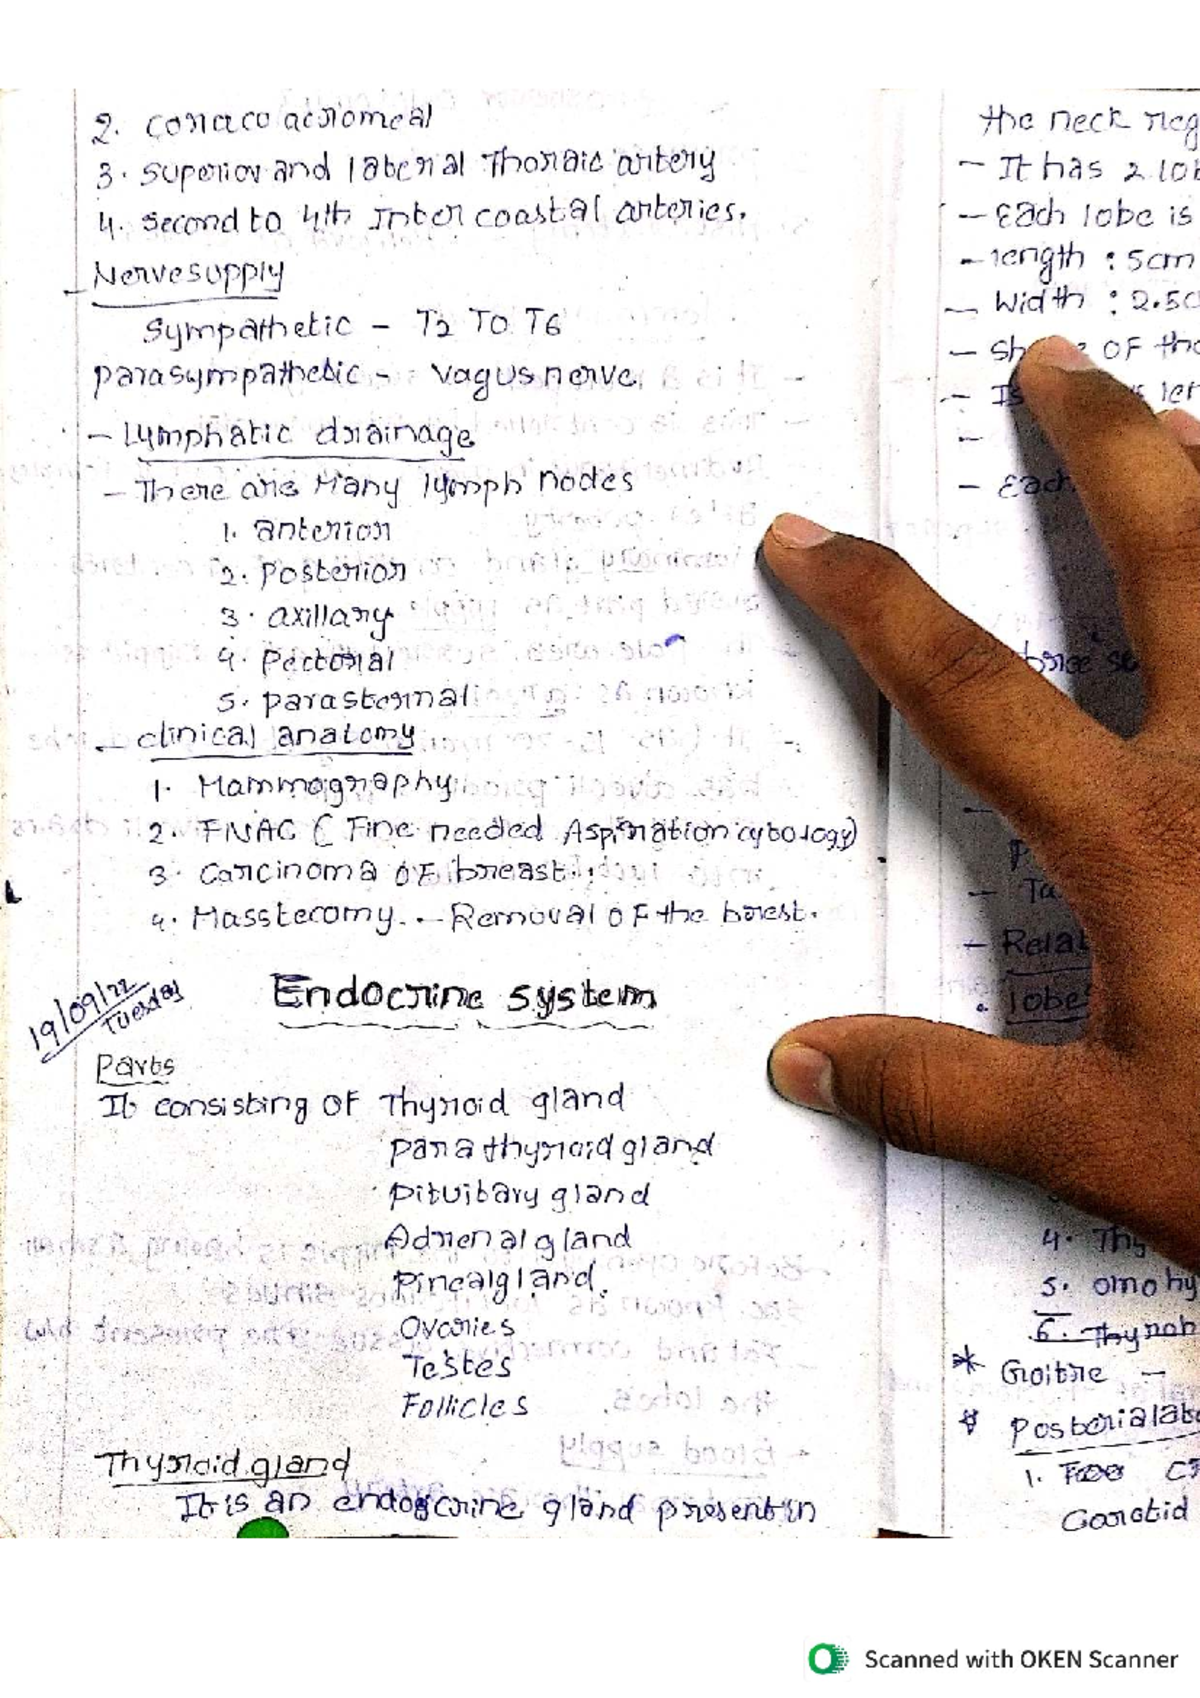 2. Coraco acromeal
3. Superior and lateral Thoraic artery
4. Second to 4th Inter coastal arteries.
Nerve supply
Sympathetic - T2 TO T6
parasympathetic - vagus nerve.
- Lymphatic drainage
- There are Many lymph nodes
1. anterior
2. Posterior
3. axillary
4. Pectoral
5. parasternal
- clinical anatomy
1. Mammography
2. FNAC ( Fine needed Aspiration cytology)
3. Carcinoma OF breast.
4. Masstecomy. - Removal OF the brest.
19/09/22
Tuesday
Endocrine system
Parts
It consisting OF Thyroid gland
Para thyroid gland
Pituitary gland
Adrenal gland
Pineal gland.
Ovaries
Testes
Follicles
Thyroid gland
It is an endocrine gland present in
the neck reg
- It has 2 lob
- Each lobe is
- length : 5cm
- Width : 2.5c
- OF tho
- Each
- Ta
- Relat
. lobe
4. Thy
5. omohy
6. Thyroh
* Goitre -
Posterialate
1. CT
Carotid
Scanned with OKEN Scanner